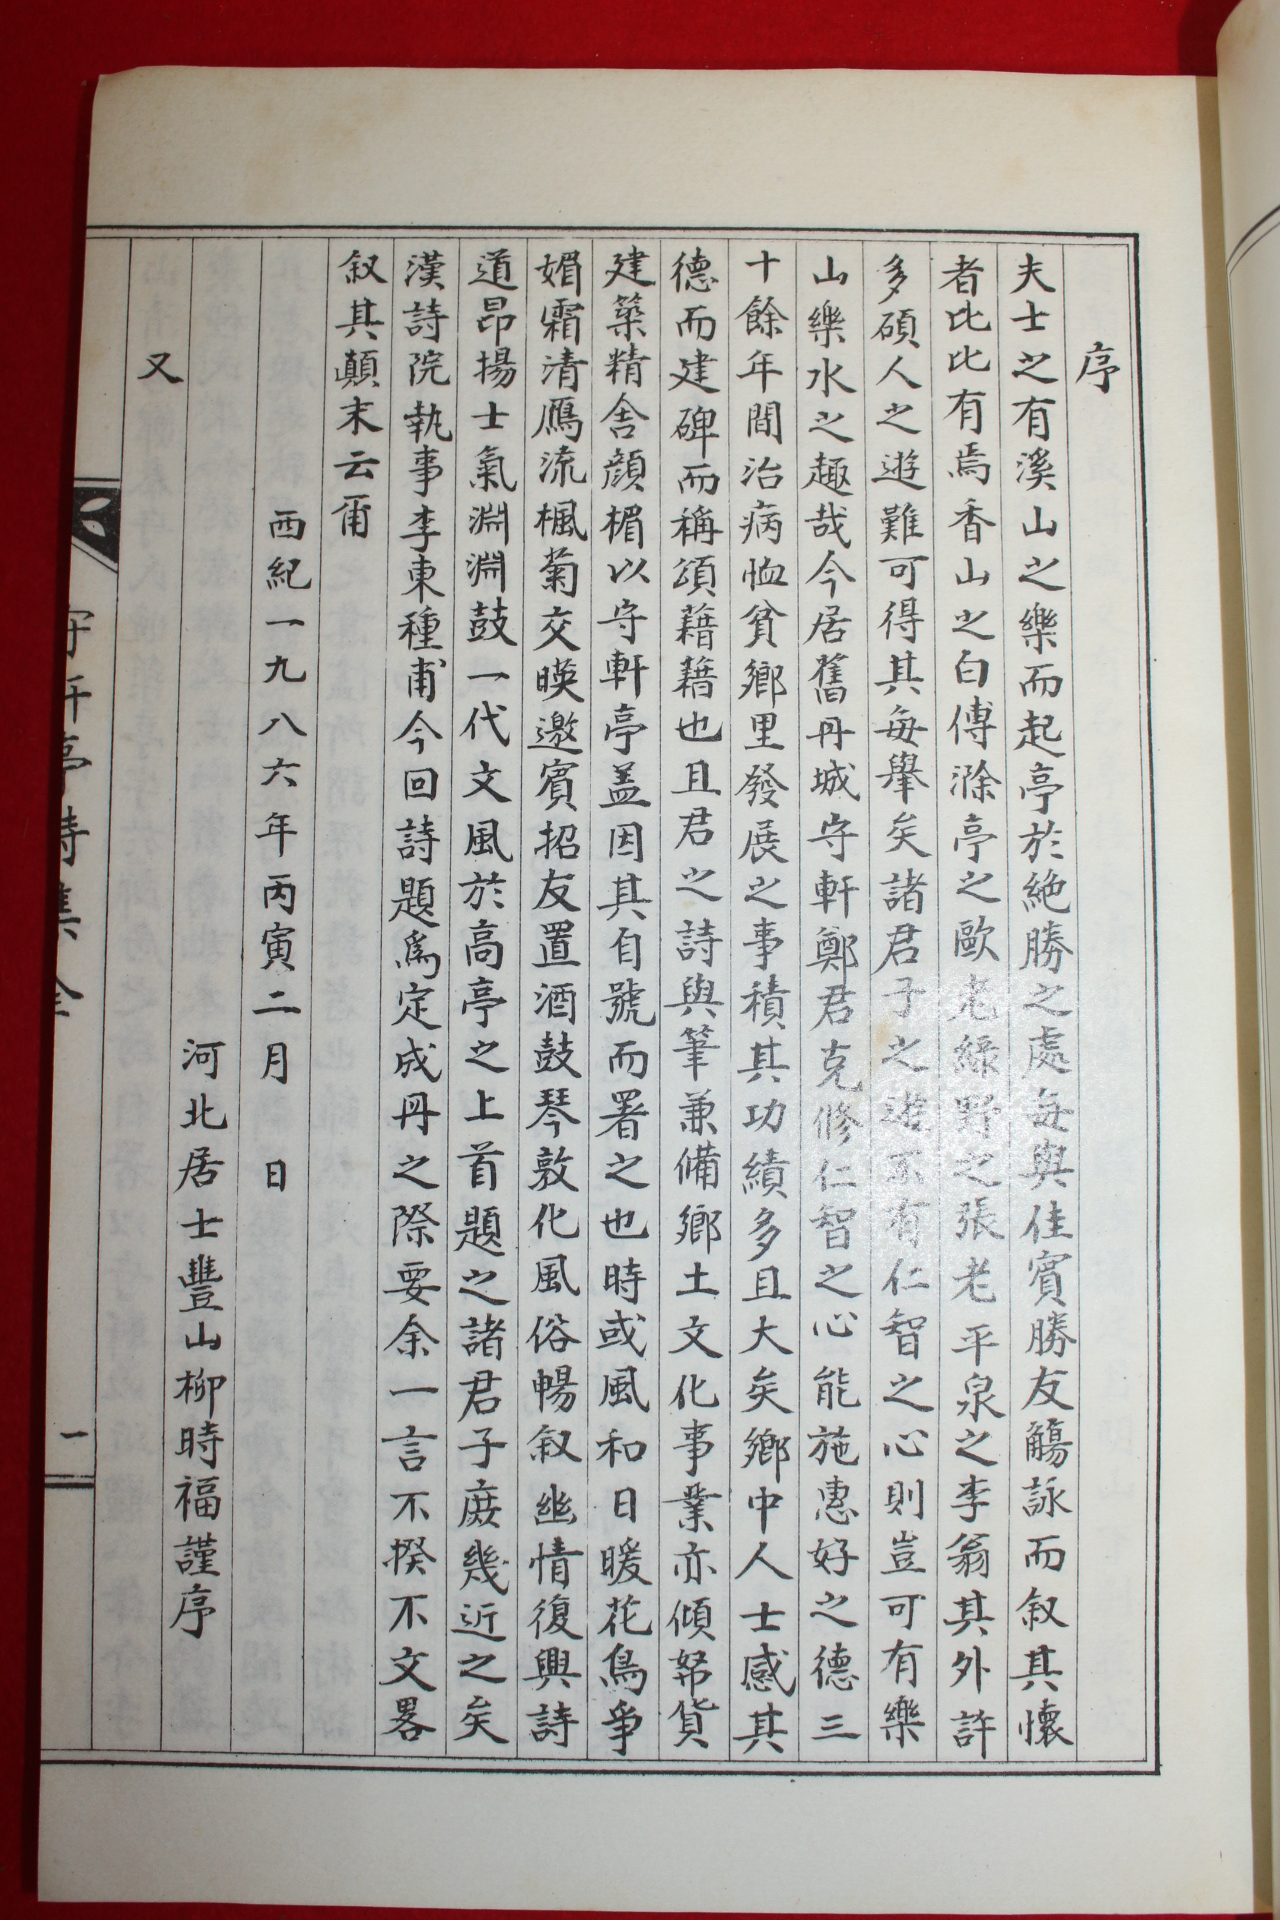 序
夫士之有溪山之樂而起亭於絶勝之處每與佳賓勝友觴詠而叙其懷
者比比有焉香山之白傅滁亭之歐老綠野之張老平泉之李翁其外許
多碩人之遊難可得其每擧矣諸君子之遊不有仁智之心則豈可有樂
山樂水之趣哉今居舊丹城守軒鄭君克修仁智之心能施惠好之德三
十餘年間治病恤貧鄉里發展之事積其功績多且大矣鄉中人士感其
德而建碑而稱頌藉藉也且君之詩與筆兼備鄉土文化事業亦傾帑貨
建築精舍顔楣以守軒亭盖因其自號而署之也時或風和日暖花鳥爭
媚霜清鴈流楓菊交暎邀賓招友置酒鼓琴敦化風俗暢叙幽情復興詩
道昂揚士氣淵淵鼓一代文風於高亭之上首題之諸君子庻幾近之矣
漢詩院執事李東種甫今回詩題爲定成丹之際要余一言不揆不文畧
叙其顛末云甭
西紀一九八六年丙寅二月 日
河北居士豐山柳時福謹序
又
守軒亭詩集 全
一